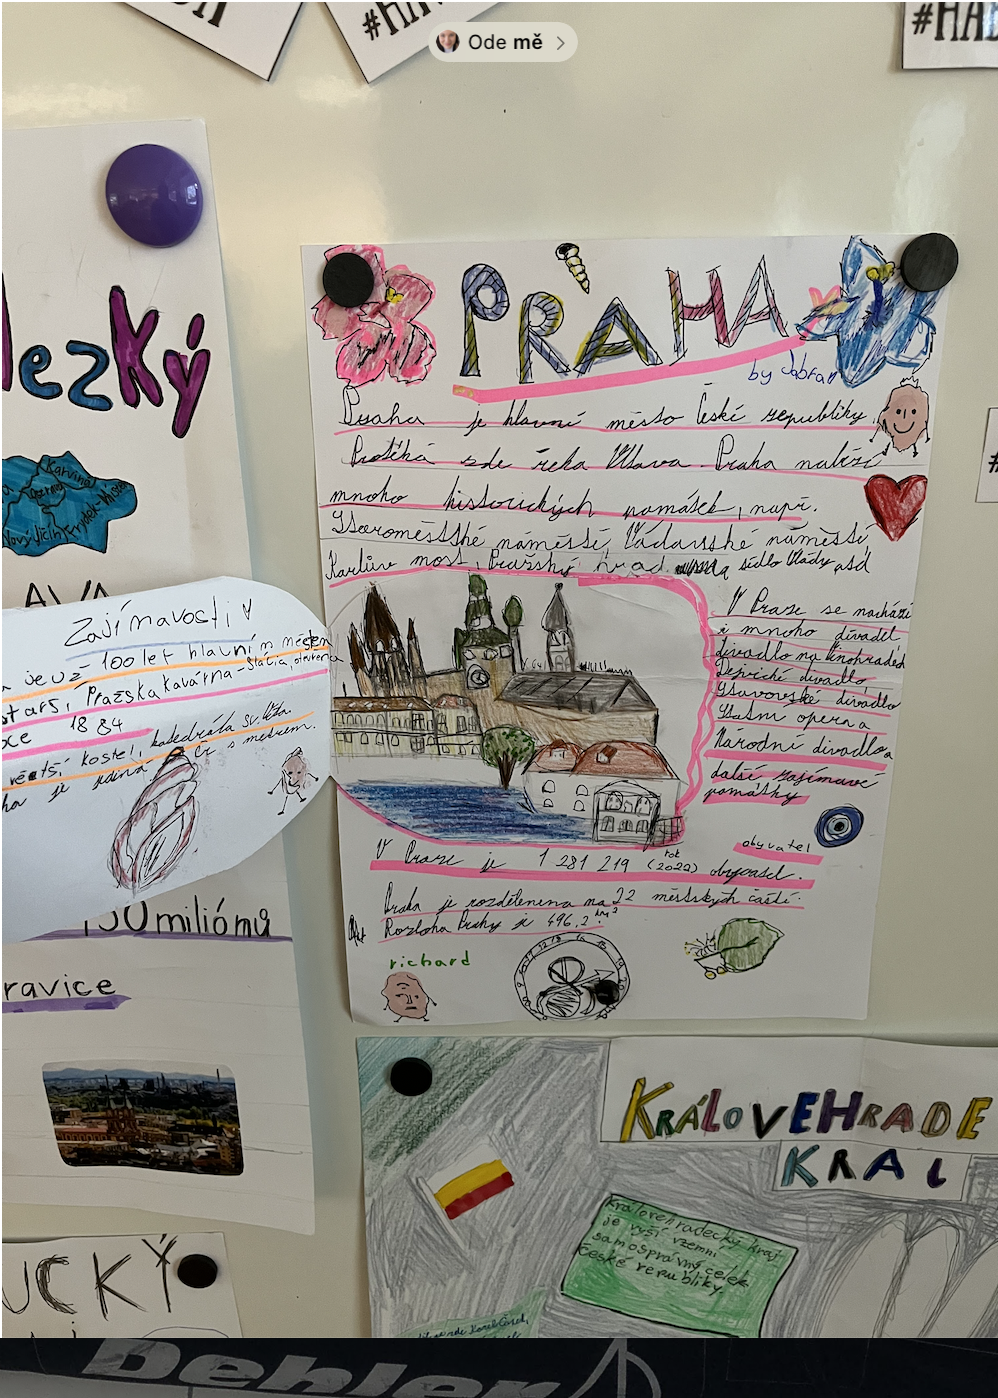 Ode mě
PRAHA
by Jabfall
Praha je hlavní město České republiky
Protéká zde řeka Vltava. Praha nabízí
mnoho historických památek, např.
Staroměstské náměstí, Václavské náměstí,
Karlův most, Pražský hrad sídlo vlády atd
V Praze se nachází
i mnoho divadel
divadlo na Vinohradech
Dejvické divadlo
Stavovské divadlo
Státní opera a
Národní divadlo a
další zajímavé
památky
obyvatel
V Praze je 1 281 219 (rok 2022) obyvatel.
Praha je rozdělenena na 22 městských částí.
Rozloha Prahy je 496,2 km²
richard
lezký
Karviná
Nový Jičín Frýdek-Místek
AVA
Zajímavosti
je už 100let hlavním městem
starší, Pražská kavárna - Slávia, otevřena
1884
větší kostel, katedrála sv. Víta
je jediná ČR s metrem.
130 miliónů
ravice
UCKÝ
KRÁLOVEHRADE
KRAJ
Královehradecký kraj
je vyší vzemní
samosprávný celek
České republiky.
zde Karel Čapek,
Dehler